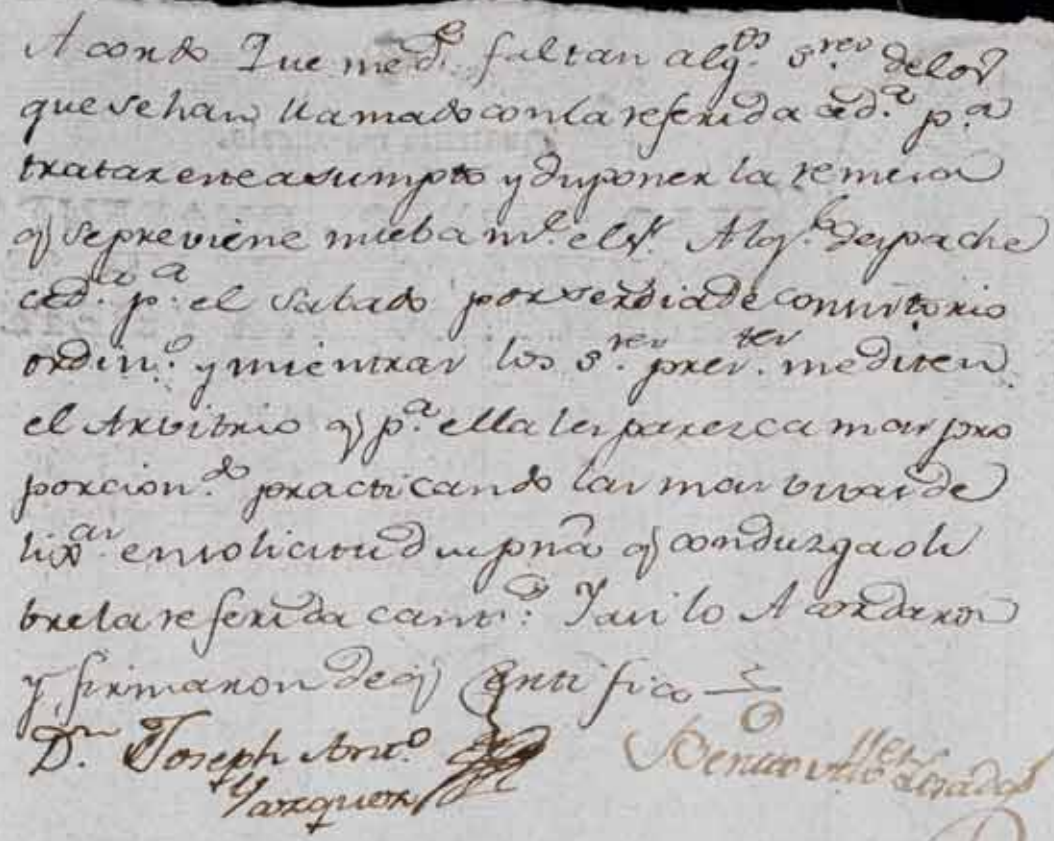 Acordo Que medte. faltan algos. sres. delos
que se han llamado con la referida ceda. pa.
tratar este asumpto y disponer la remesa
q sepreviene  el Sr. Algl. despache
ceda. pa. el Sabado por ser dia de consistorio
ordino. y mientras los sres. pres.tes mediten
el Arvitrio q pa. ella les paresca mas pro
porciondo. practicando las mas vivas de
lixas. en solicitud  psna q conduzga o li
bre la referida cantd. Y asi lo Acordaron
y firmaron de q Certifico
Dn. Joseph Anto.
Vazquez Benito